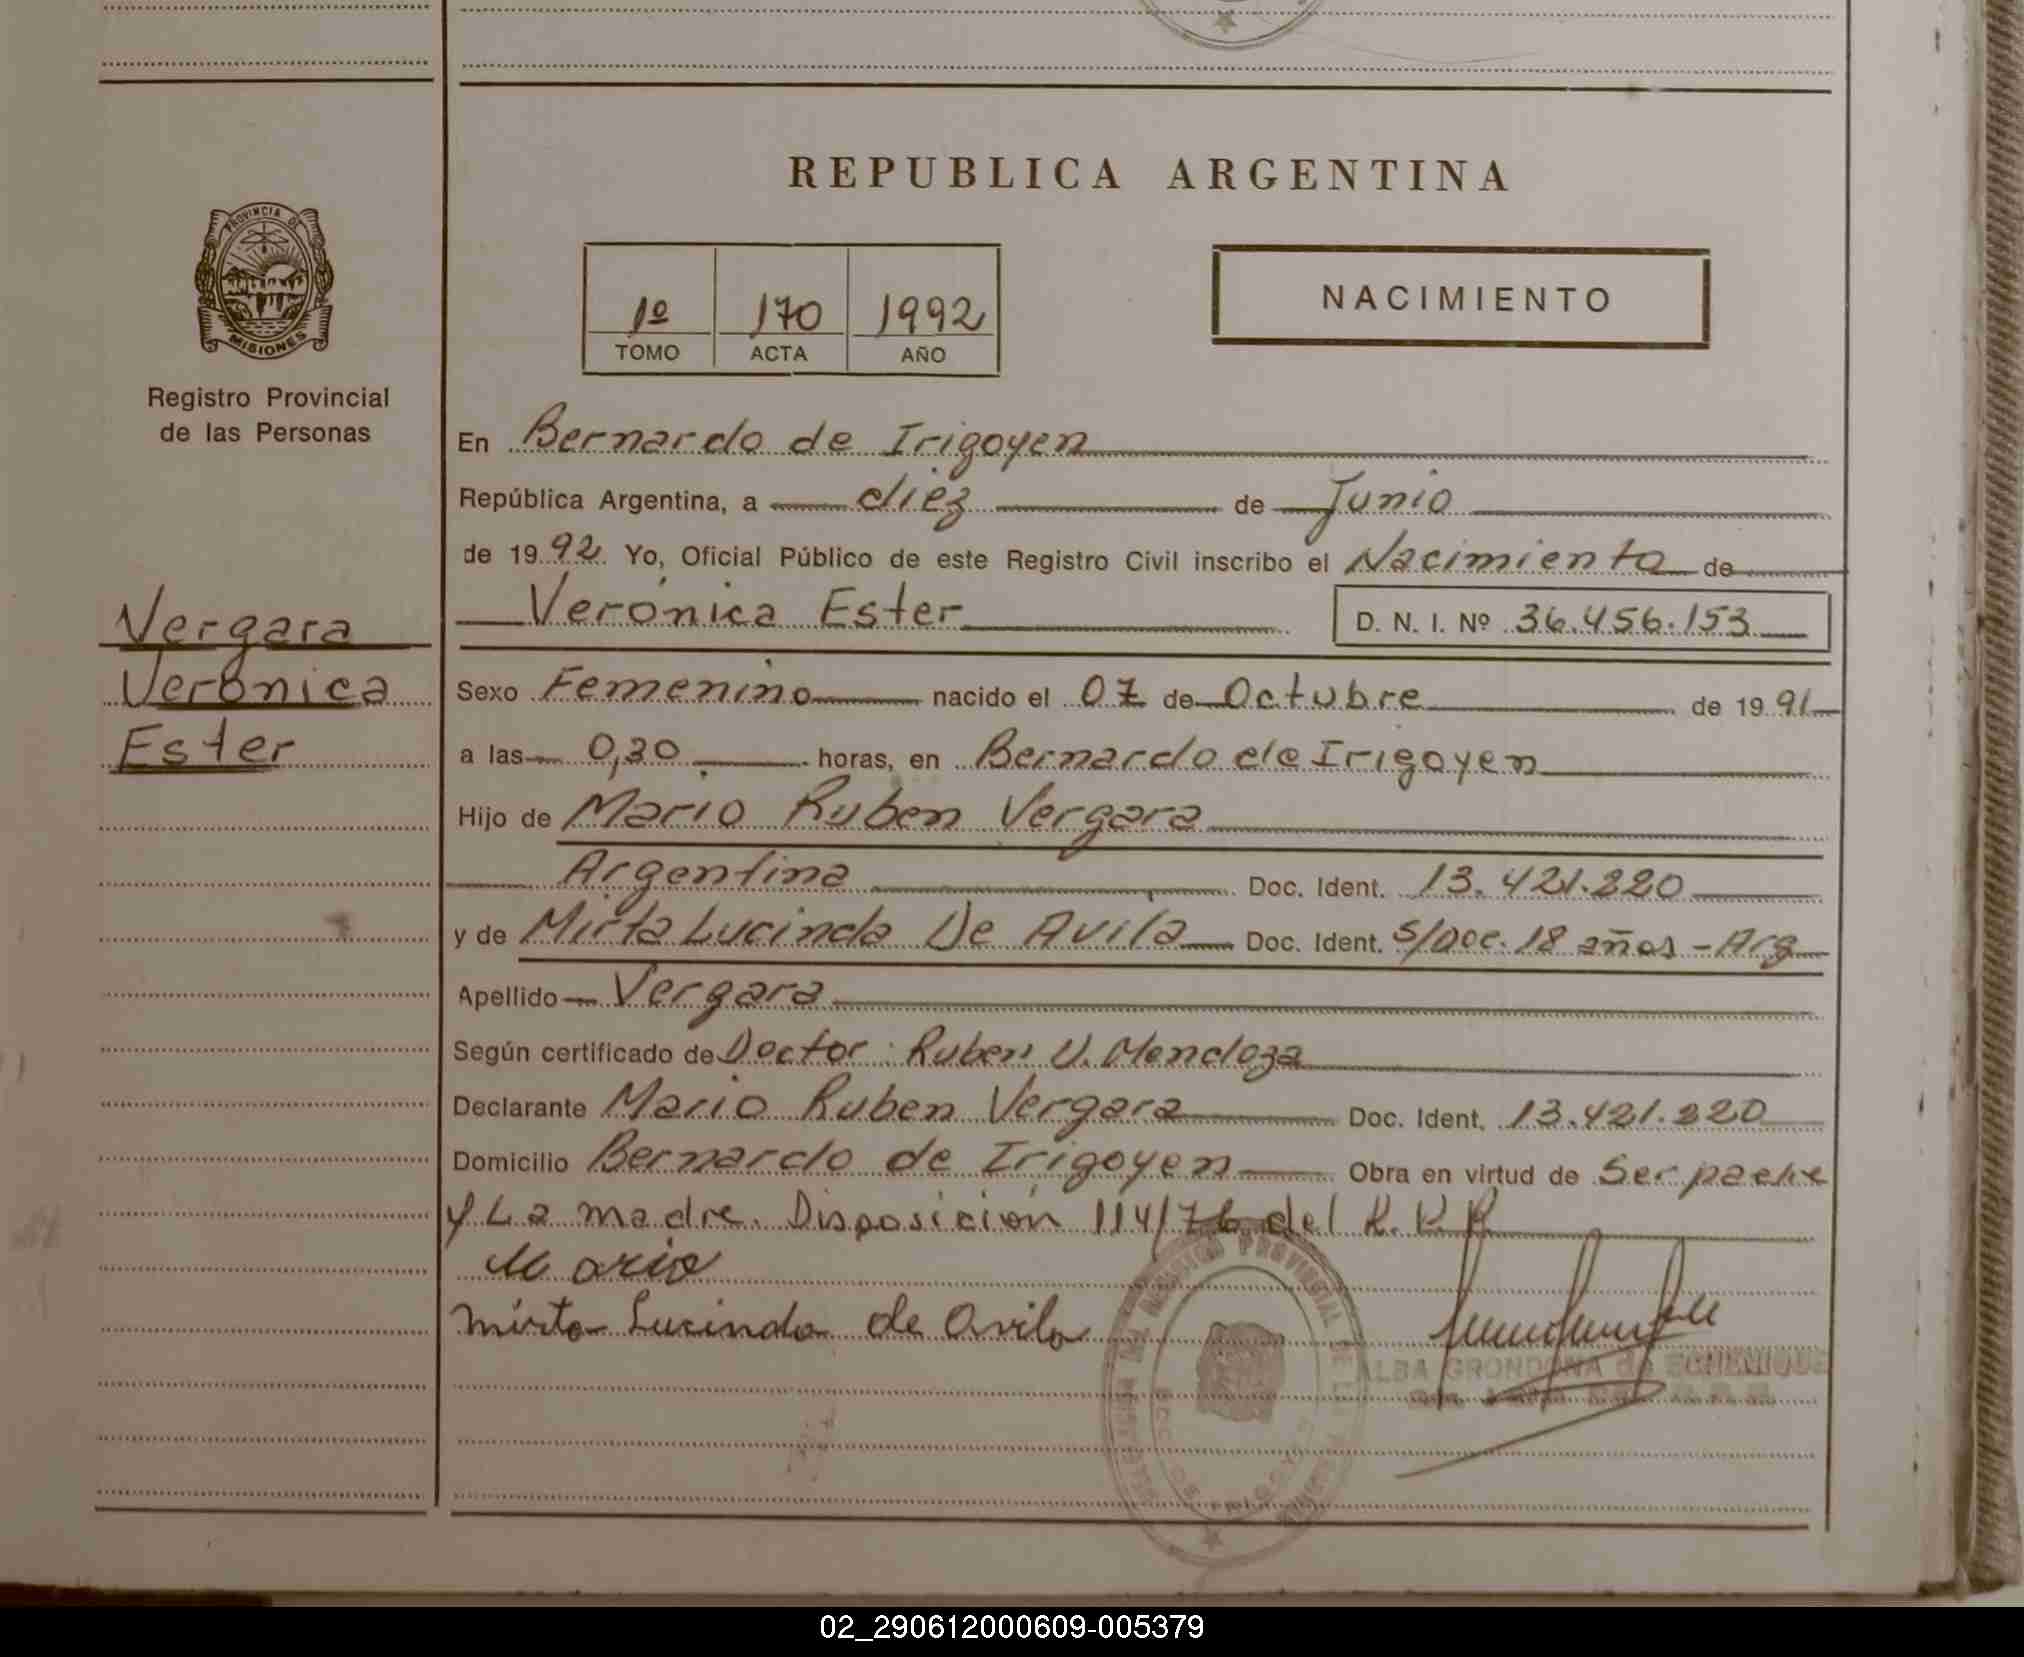 REPUBLICA ARGENTINA
PROVINCIA DE
MISIONES
Registro Provincial
de las Personas
1º 170 1992
TOMO ACTA AÑO
NACIMIENTO
Vergara
Verónica
Ester
En Bernardo de Irigoyen
República Argentina, a diez de Junio
de 1992. Yo, Oficial Público de este Registro Civil inscribo el Nacimiento de
Verónica Ester D. N. I. Nº 36.456.153
Sexo Femenino nacido el 07 de Octubre de 1991
a las 0,30 horas, en Bernardo de Irigoyen
Hijo de Mario Ruben Vergara
Argentina Doc. Ident. 13.421.220
y de Mirta Lucinda De Avila Doc. Ident. S/Doc. 18 años - Arg
Apellido Vergara
Según certificado de Doctor: Ruben V. Mendoza
Declarante Mario Ruben Vergara Doc. Ident. 13.421.220
Domicilio Bernardo de Irigoyen Obra en virtud de Ser padre
y La madre. Disposición 114/76 del R. P. P.
Mario
Mirta Lucinda de Avila
REGISTRO PROVINCIAL DE
ALBA GRONDONA de ECHENIQUE
02_290612000609-005379